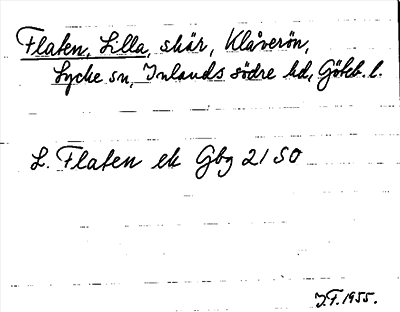 Flaten, Lilla, skär, Klåverön,
Lycke sn, Inlands södre hd, Göteb. l.
L. Flaten ek Gbg 21 SO
J.F. 1955.